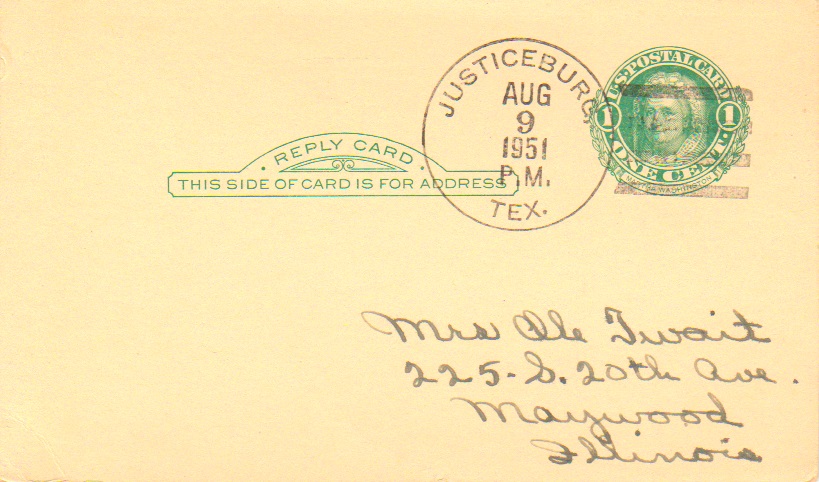 JUSTICEBURG,
AUG
9
1951
P.M.
TEX.
U.S. POSTAL CARD
1 1
ONE CENT.
MARTHA WASHINGTON
· REPLY CARD ·
THIS SIDE OF CARD IS FOR ADDRESS
Mrs Ole Twait
225-S. 20th Ave.
Maywood
Illinois